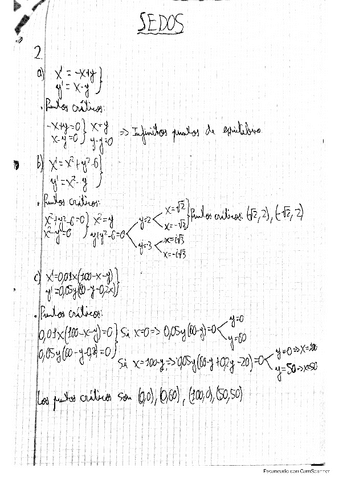 SEDOS
2.
a) x' = -x+y
y' = x-y
• Puntos críticos:
-x+y=0 } x=y
x-y=0 } y-y=0 => Infinitos puntos de equilibrio
b) x' = x²+y²-6
y' = x²-y
• Puntos críticos:
x²+y²-6=0 } x²=y
x²-y=0 } y+y²-6=0 < y=2 < x=√2
x=-√2 } Puntos críticos (√2, 2), (-√2, 2)
y=-3 < x=i√3
x=-i√3
c) x'=0,01x(100-x-y)
y'=0,05y(60-y-0,2x)
• Puntos críticos:
0,01x(100-x-y)=0 } Si x=0 => 0,05y(60-y)=0 < y=0
y=60
0,05y(60-y-0,2x)=0 } Si x=100-y => 0,05y(60-y+0,2y-20)=0 < y=0 => x=100
y=50 => x=50
Los puntos críticos son (0,0), (0,60), (100,0), (50,50)
Escaneado con CamScanner